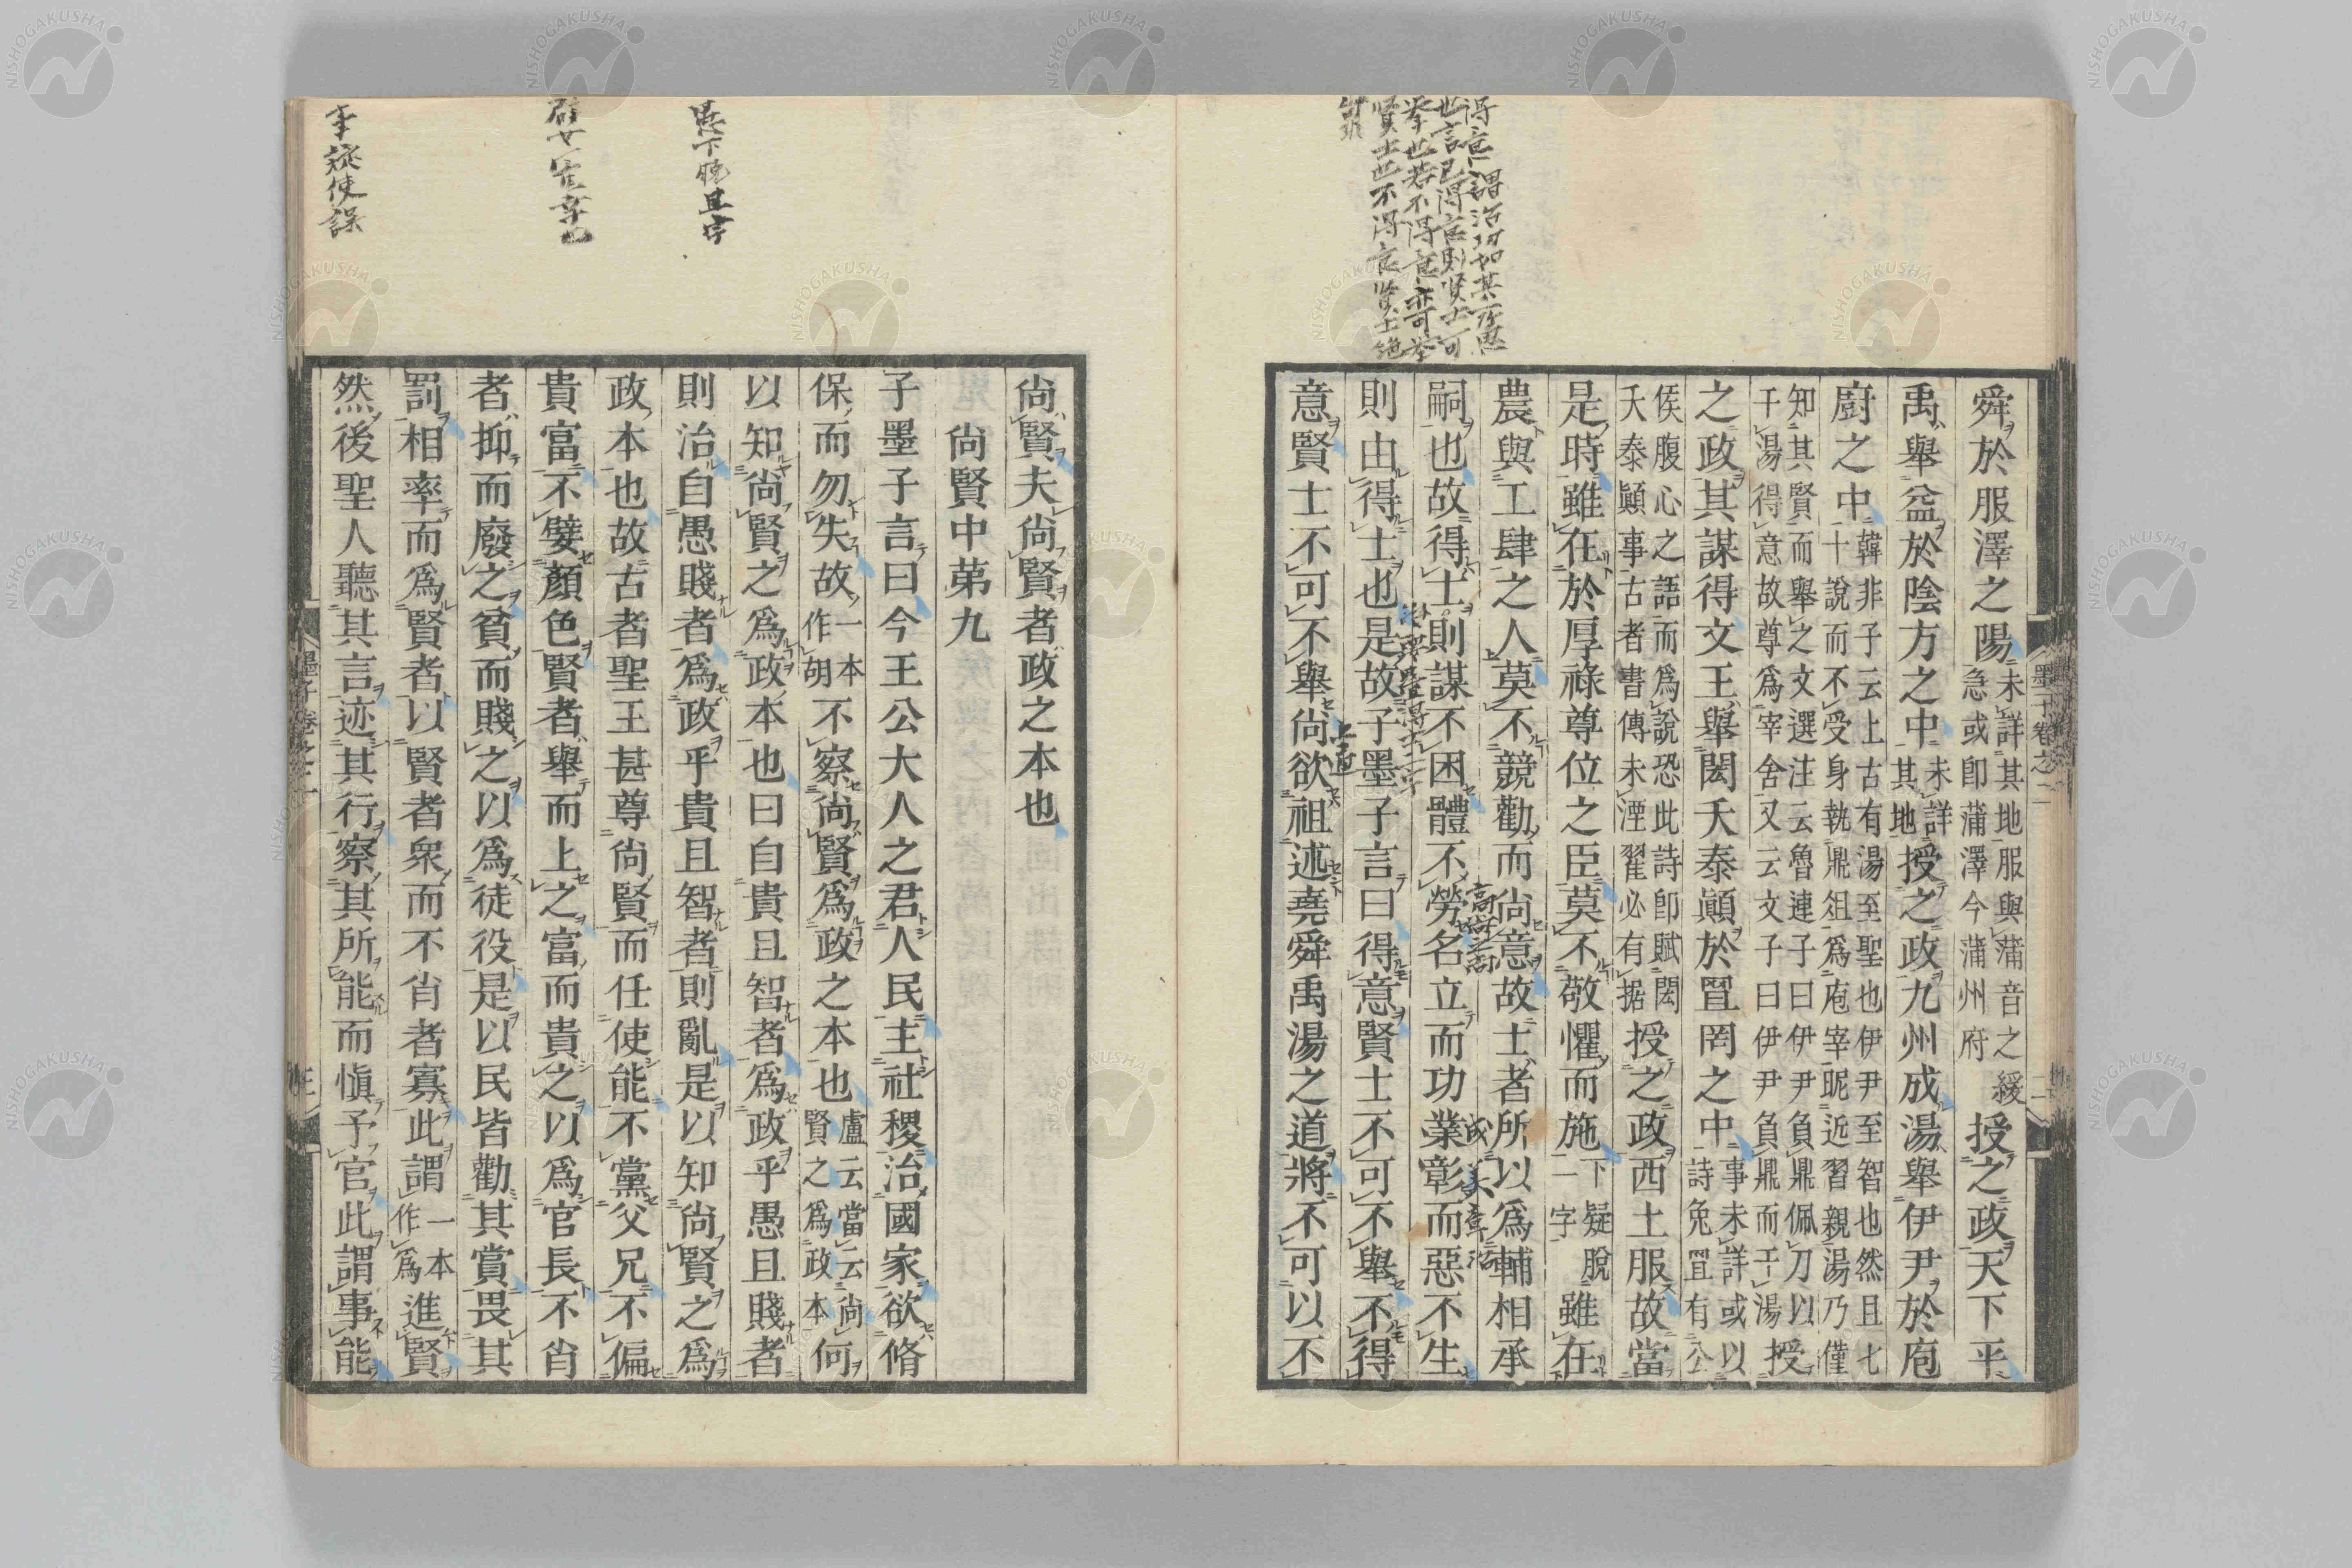 舜於服澤之陽未詳其地服與蒲音之緩急或卽蒲澤今蒲州府授之政天下平
禹舉益於陰方之中未詳其地授之政九州成湯舉伊尹於庖
廚之中韓非子云上古有湯至聖也伊尹至智也然且七十說而不受身執鼎俎爲庖宰昵近習親湯乃僅
知其賢而舉之文選注云魯連子曰伊尹負鼎佩刀以干湯得意故尊爲宰舍又云文子曰伊尹負鼎而干湯授
之政其謀得文王舉閎夭泰顚於罝罔之中事未詳或以詩兔罝有公
侯腹心之語而爲說恐此詩卽賦閎夭泰顚事古者書傳未湮翟必有据授之政西土服故當
是時雖在於厚祿尊位之臣莫不敬懼而施下疑脫一字雖在
農與工肆之人莫不競勸而尙意故士者所以爲輔相承
嗣也故得士則謀不困體不勞名立而功業彰而惡不生
則由得士也是故子墨子言曰得意賢士不可不舉不得
意賢士不可不舉尙欲祖述堯舜禹湯之道將不可以不
尙賢夫尙賢者政之本也
尙賢中第九
子墨子言曰今王公大人之君人民主社稷治國家欲脩
保而勿失故一本作胡不察尙賢爲政之本也盧云當云尙賢之爲政本何
以知尙賢之爲政本也曰自貴且智者爲政乎愚且賤者
則治自愚賤者爲政乎貴且智者則亂是以知尙賢之爲
政本也故古者聖王甚尊尙賢而任使能不黨父兄不偏
貴富不嬖顏色賢者舉而上之富而貴之以爲官長不肖
者抑而廢之貧而賤之以爲徒役是以民皆勸其賞畏其
罰相率而爲賢者以賢者衆而不肖者寡此謂一本作爲進賢
然後聖人聽其言迹其行察其所能而愼予官此謂事能
墨子卷之二